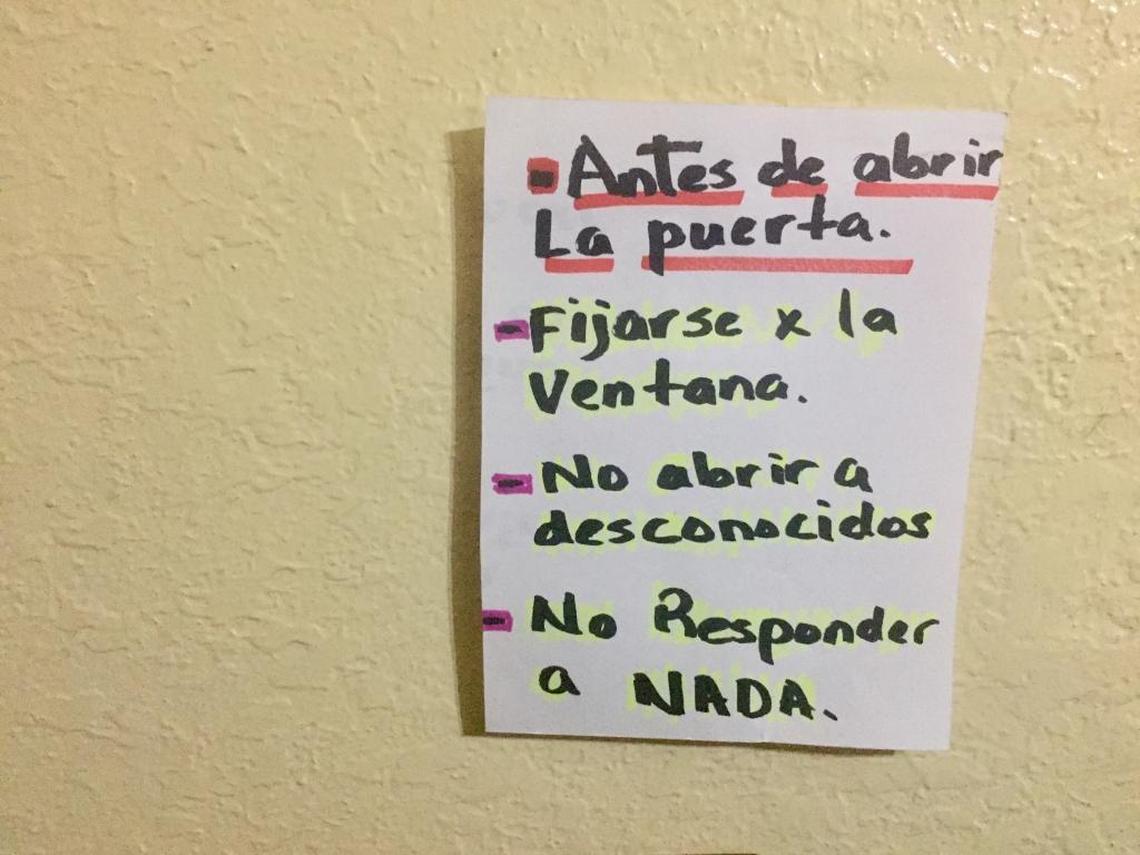 - Antes de abrir
La puerta.
- Fijarse x la
Ventana.
- No abrir a
desconocidos
- No Responder
a NADA.